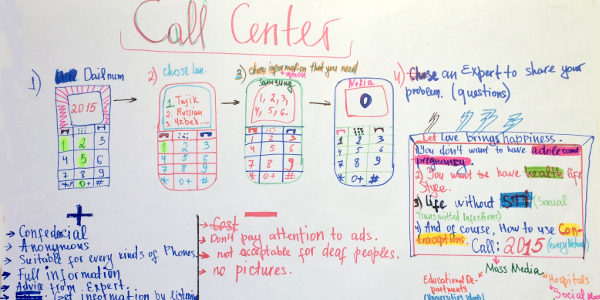 Call Center
1) Dailnum
2) chose lan.
3) chose information that you need
option
4) Chose an Expert to share your
problem. (questions)
2015
1. Tajik
2. Russian
3. Uzbek....
Samsung
1, 2, 3,
4, 5, 6.
Nokia
0
1 2 3
4 5 6
7 8 9
* 0+ #
1 2 3
4 5 6
7 8 9
* 0+ #
1 2 3
4 5 6
7 8 9
* 0+ #
1 2 3
4 5 6
7 8 9
* 0+ #
Let Love brings happiness.
1) You don't want to have adolescent
pregnancy.
2) You want to have health life
Style.
3) Life without STI (Sexual
Transmitted Infections)
4) And of course, How to use Con-
traceptions.
Call: 2015 (every Network)
+
→ Confedencial
→ Anonymous
→ Suitable for every kinds of Phones
→ Full information
→ Advice from Expert.
→ Get information by listening
-
→ Cost
→ Don't pay attention to ads.
→ not acceptable for deaf peoples.
→ no pictures.
Mass Media
Educational De-
partments
Hospitals
Social